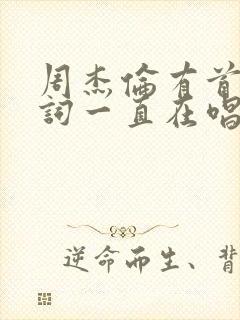 周杰倫有首
詞一直在唱
逆命而生、背